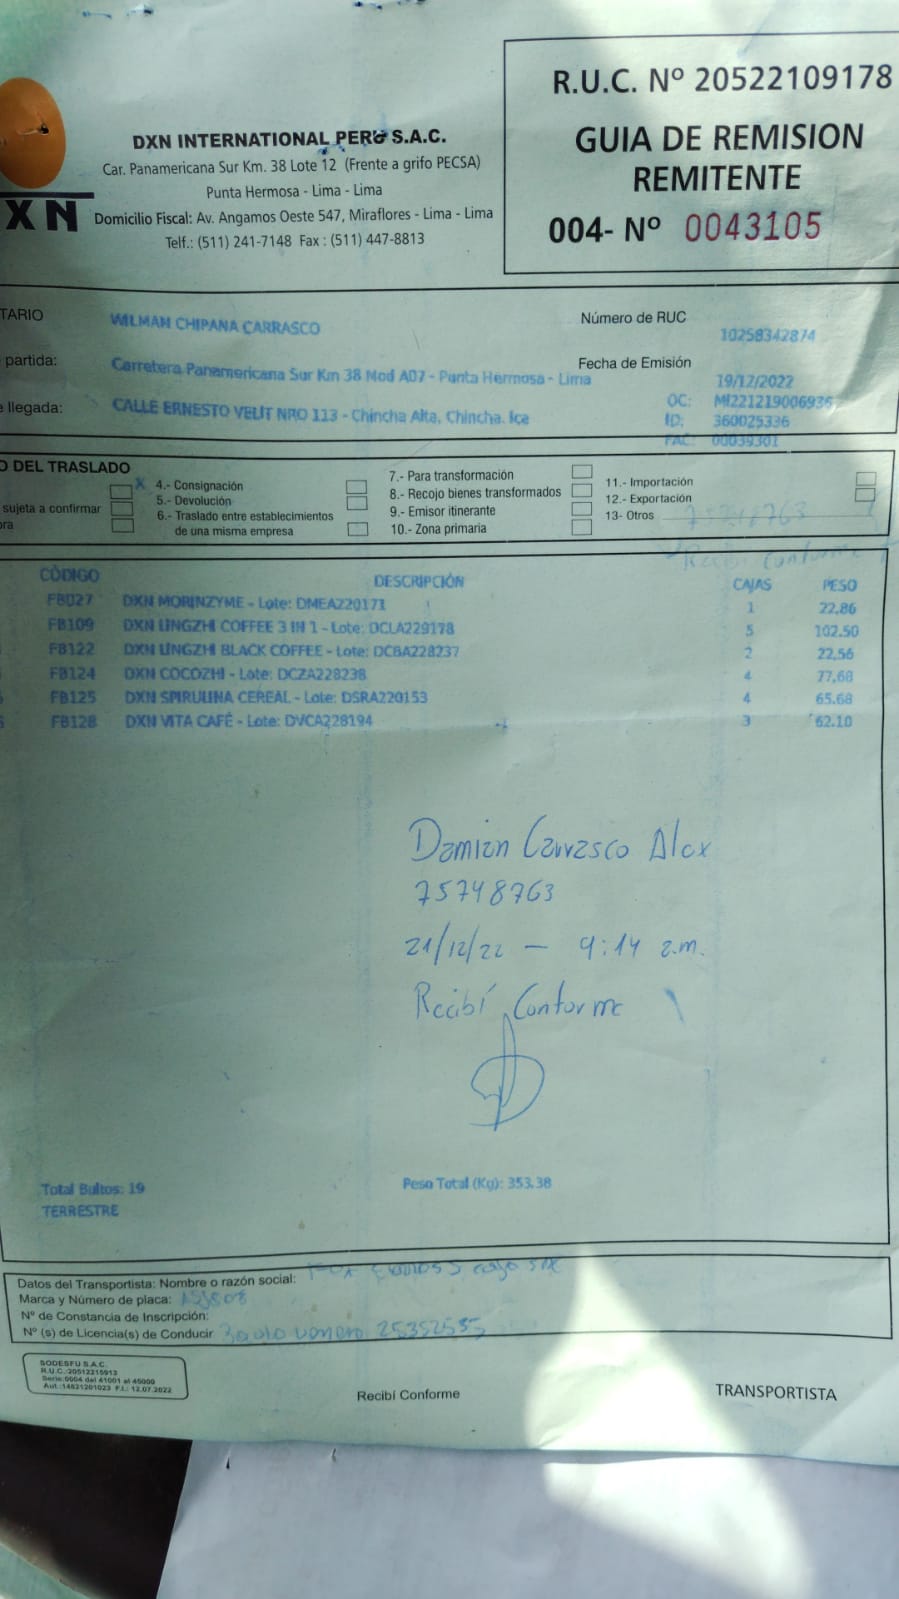 R.U.C. Nº 20522109178
GUIA DE REMISION
REMITENTE
004- Nº 0043105
DXN INTERNATIONAL PERÚ S.A.C.
Car. Panamericana Sur Km. 38 Lote 12 (Frente a grifo PECSA)
Punta Hermosa - Lima - Lima
Domicilio Fiscal: Av. Angamos Oeste 547, Miraflores - Lima - Lima
Telf.: (511) 241-7148 Fax : (511) 447-8813
XN
TARIO WILMAN CHIPANA CARRASCO Número de RUC 10258342874
partida: Carretera Panamericana Sur Km 38 Mod A07 - Punta Hermosa - Lima Fecha de Emisión 19/12/2022
e llegada: CALLE ERNESTO VELIT NRO 113 - Chincha Alta, Chincha. Ica OC: MI221219006936
ID: 360025336
FAC: 00039301
O DEL TRASLADO
X 4.- Consignación 7.- Para transformación 11.- Importación
sujeta a confirmar 5.- Devolución 8.- Recojo bienes transformados 12.- Exportación
ora 6.- Traslado entre establecimientos 9.- Emisor itinerante 13- Otros
de una misma empresa 10.- Zona primaria
Recibí Conforme
CÓDIGO DESCRIPCIÓN CAJAS PESO
FB027 DXN MORINZYME - Lote: DMEAZ20171 1 22,86
FB109 DXN LINGZHI COFFEE 3 IN 1 - Lote: DCLA229178 5 102.50
FB122 DXN LINGZHI BLACK COFFEE - Lote: DCBA228237 2 22,56
FB124 DXN COCOZHI - Lote: DCZA228238 4 77,68
FB125 DXN SPIRULINA CEREAL - Lote: DSRA220153 4 65.68
FB128 DXN VITA CAFÉ - Lote: DVCA228194 3 62.10
Damian Carrasco Alex
75748763
21/12/22 - 9:14 a.m.
Recibí Conforme
Total Bultos: 19 Peso Total (Kg): 353,38
TERRESTRE
Datos del Transportista: Nombre o razón social:
Marca y Número de placa:
Nº de Constancia de Inscripción:
Nº (s) de Licencia(s) de Conducir 25352535
SODESFU S.A.C.
R.U.C.:20512215913
Serie:0004 del 41001 al 45000
Aut.:14831201023 F.I.: 12.07.2022
Recibí Conforme TRANSPORTISTA